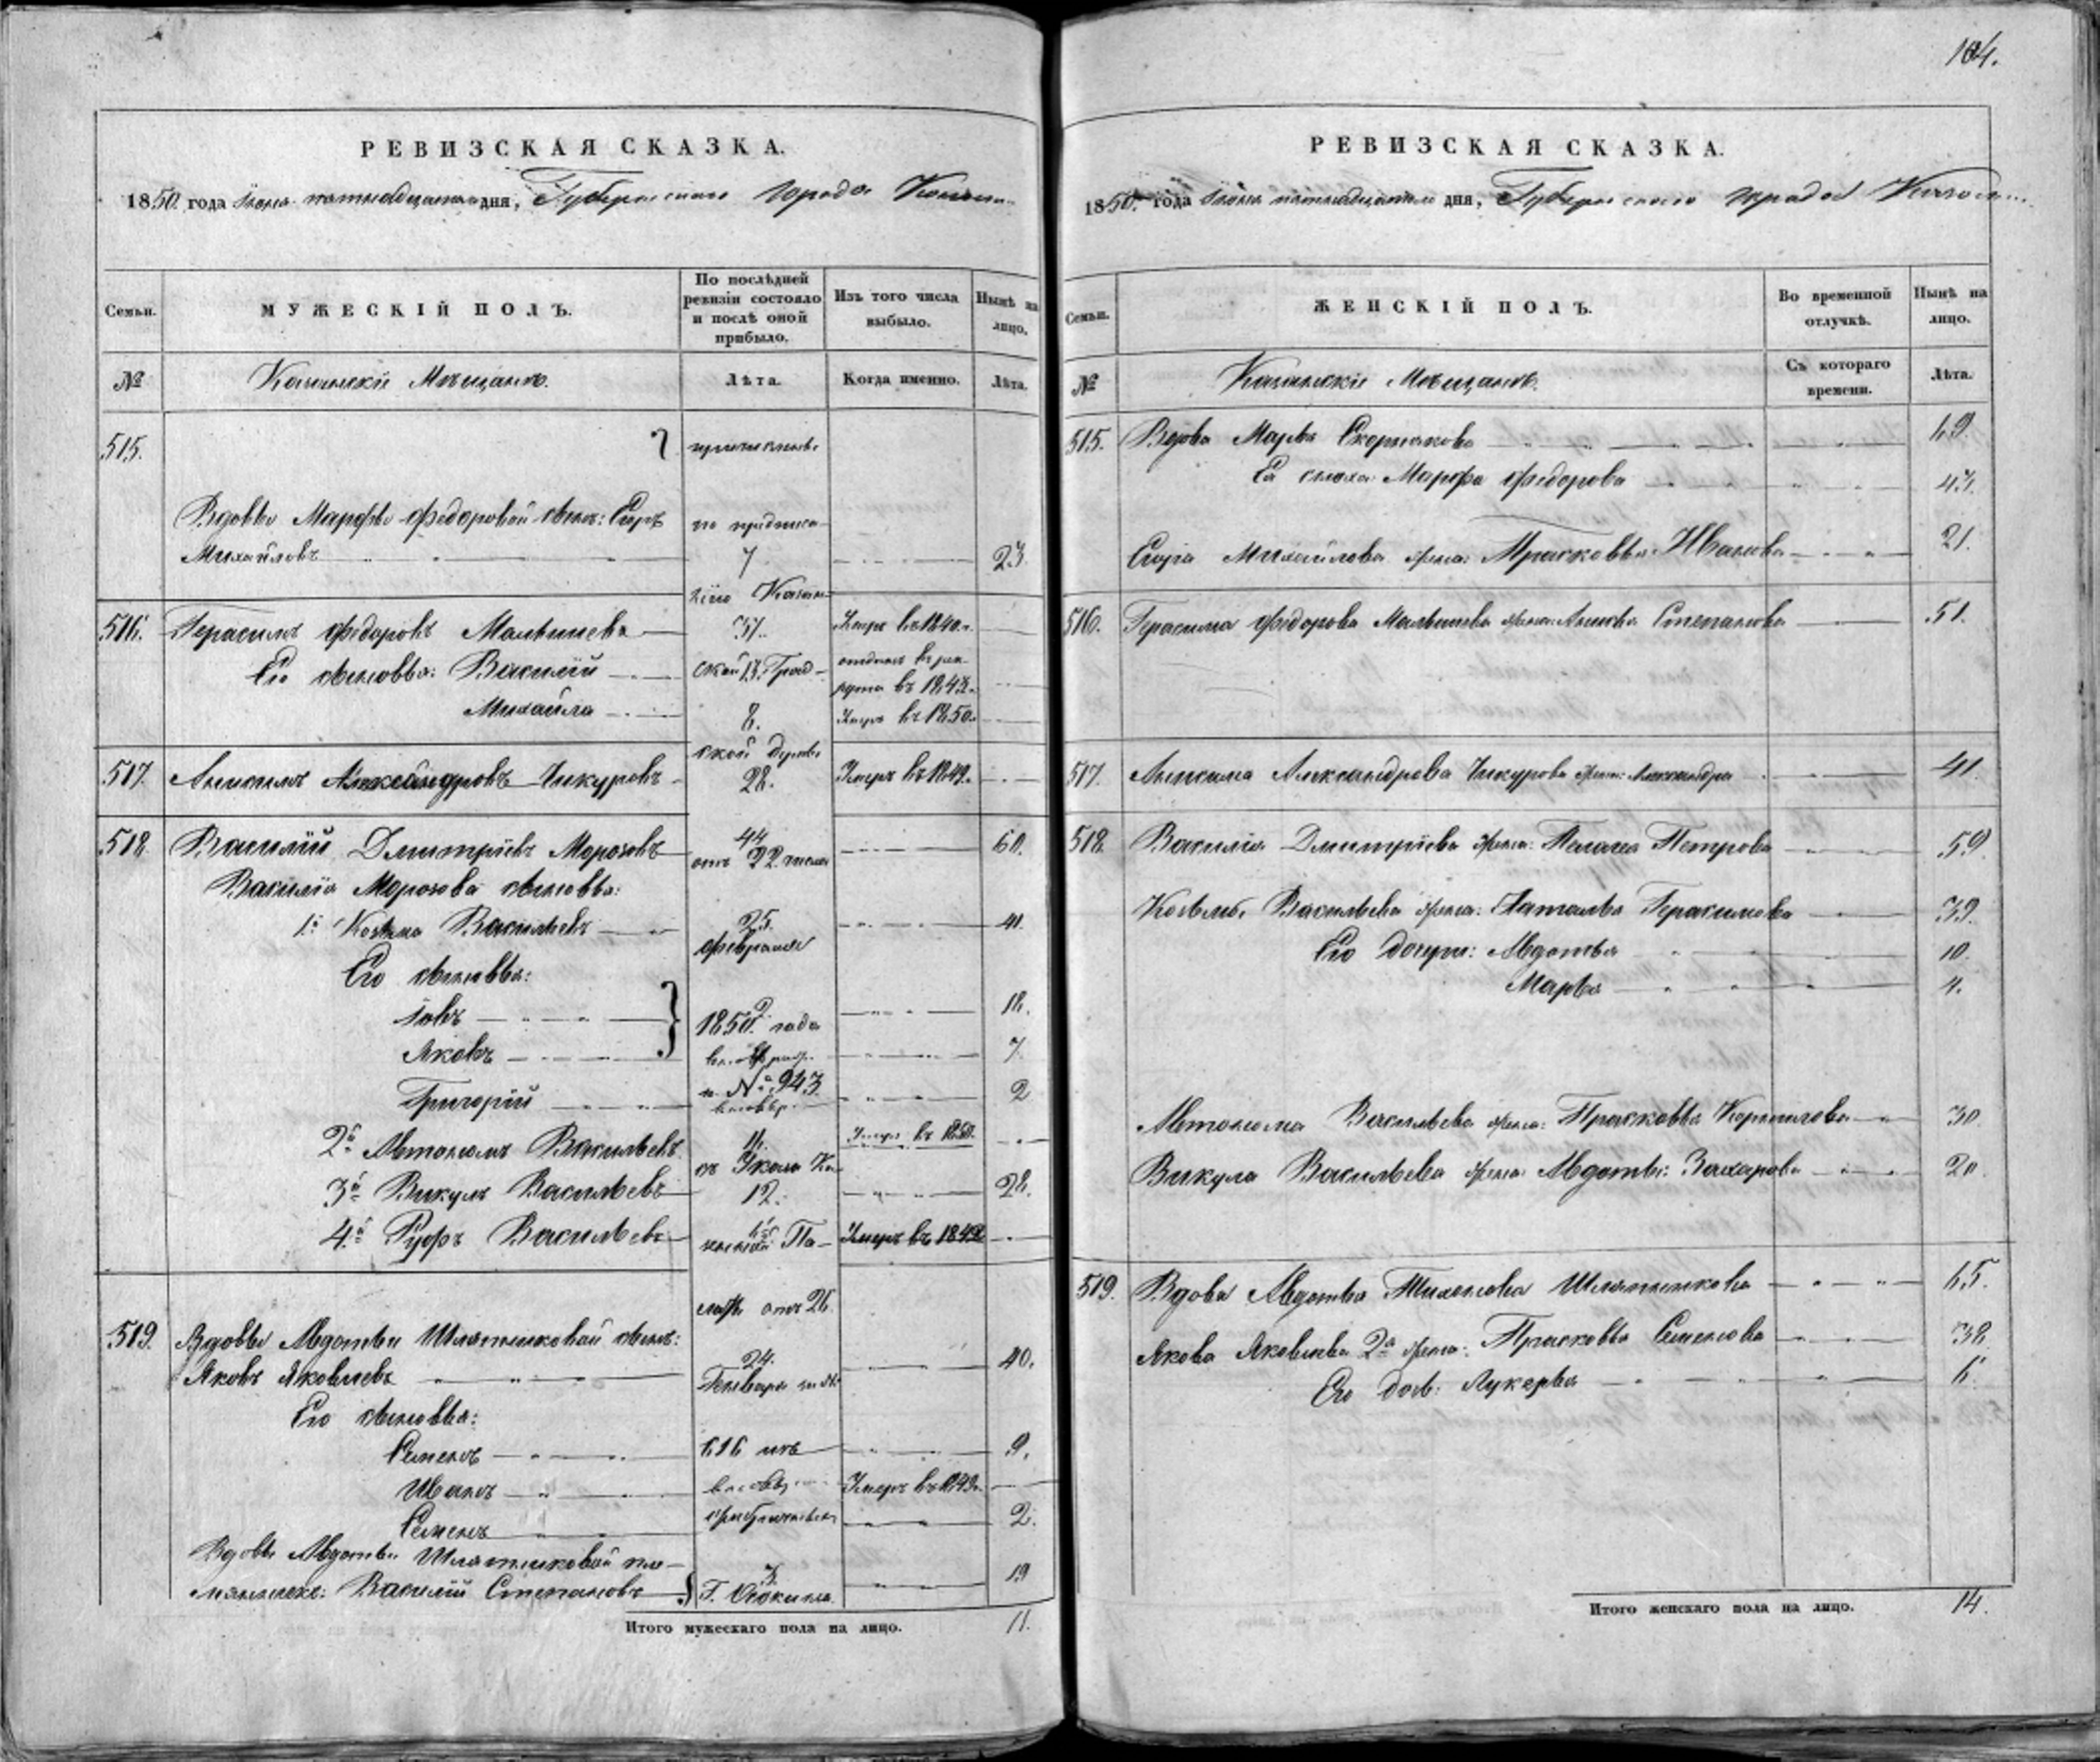 104.
РЕВИЗСКАЯ СКАЗКА.
1850. года Июня пятнадцатаго дня, Губернскаго города Казани
Семьи.
МУЖЕСКІЙ ПОЛЪ.
По послѣдней ревизіи состояло и послѣ оной прибыло.
Изъ того числа выбыло.
Нынѣ на лицо.
№
Казанскіе Мѣщане.
Лѣта.
Когда именно.
Лѣта.
515.
Вдовы Марфы Федоровой сынъ: Егоръ по предписа-
Михайловъ 7 23
нію Казан-
516. Герасимъ Федоровъ 37. Умеръ въ 1840.
Его сыновья: Василій ской Град- отданъ въ рек-
рута въ 1843.
Михайла 8. Умеръ въ 1850.
ской думы
517. Анисимъ Александровъ Чикуровъ 28. Умеръ въ 1849.
518. Василій Дмитріевъ Морозовъ 44 60.
отъ 22 числа
Василія Морозова сыновья:
1й Козьма Васильевъ 25. 41.
февраля
Его сыновья:
Іовъ 2 18.
1850. года
Яковъ 7.
за № 943
Григорій вновь 2
2й Автономъ Васильевъ Умеръ въ 1850.
3й Викулъ Васильевъ 12. 28.
4й Руфъ Васильевъ Умеръ въ 1849
латы отъ 26
519. Вдовы Авдотьи Шляпниковой сынъ:
Яковъ Яковлевъ 24. 40.
Генваря
Его сыновья:
Семенъ 9.
Иванъ Умеръ въ 1849.
Семенъ 2.
Вдовы Авдотьи Шляпниковой пле-
мянникъ: Василій Степановъ 3. 19
Итого мужескаго пола на лицо. 11.
РЕВИЗСКАЯ СКАЗКА.
1850. года Июня пятнадцатаго дня, Губернскаго города Казани
Семьи.
ЖЕНСКІЙ ПОЛЪ.
Во временной отлучкѣ.
Нынѣ на лицо.
№
Казанскіе Мѣщане.
Съ котораго времени.
Лѣта.
515. Вдова Марья Скорнякова 69.
Ея сноха Марфа Федорова 47.
Егора Михайлова жена: Прасковья Иванова 21.
516. Герасима Федорова жена: Степанова 51.
517. Анисима Александрова Чикурова жена: Александра 41.
518. Василія Дмитріева жена: Пелагея Петрова 59.
Козьмы Васильева жена: Наталья Герасимова 39.
Его дочери: Авдотья 10.
Марья 4.
Автонома Васильева жена: Прасковья Корнилова 30.
Викула Васильева жена: Авдотья Захарова 20.
519. Вдова Авдотья Тихонова Шляпникова 65.
Якова Яковлева 2я жена: Прасковья Семенова 38.
Его дочь: Лукерья 6.
Итого женскаго пола на лицо. 14.